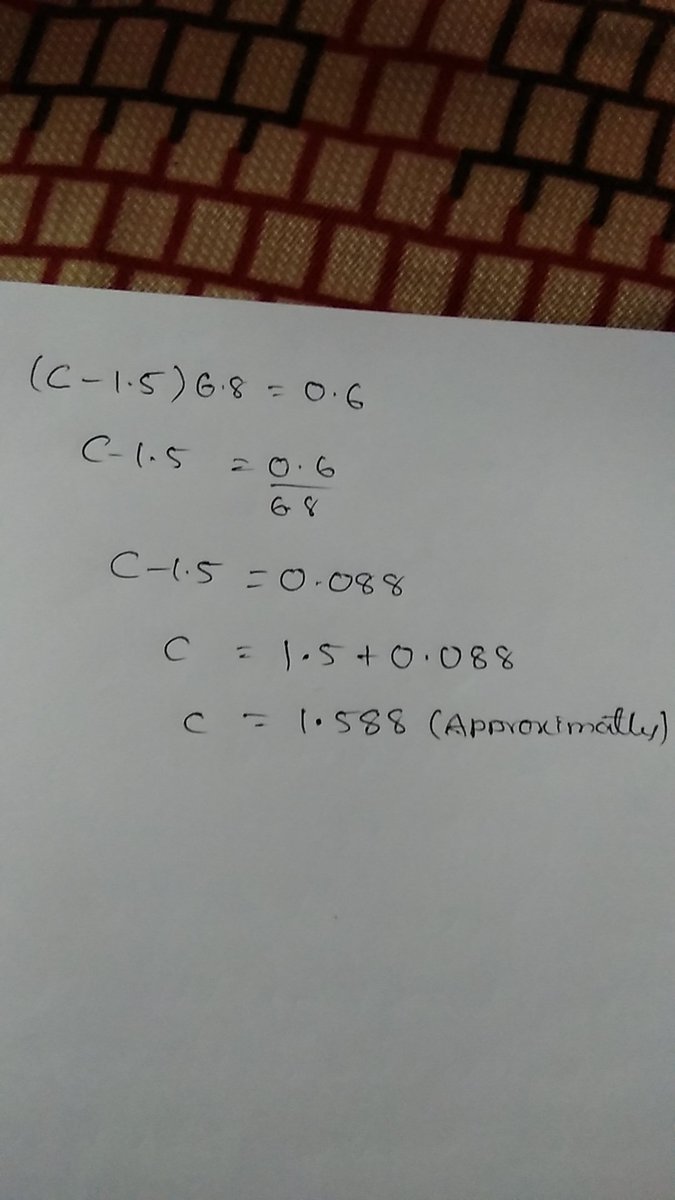 (C-1.5)6.8 = 0.6
C-1.5 = 0.6
68
C-1.5 = 0.088
C = 1.5+0.088
C = 1.588 (Approximatly)